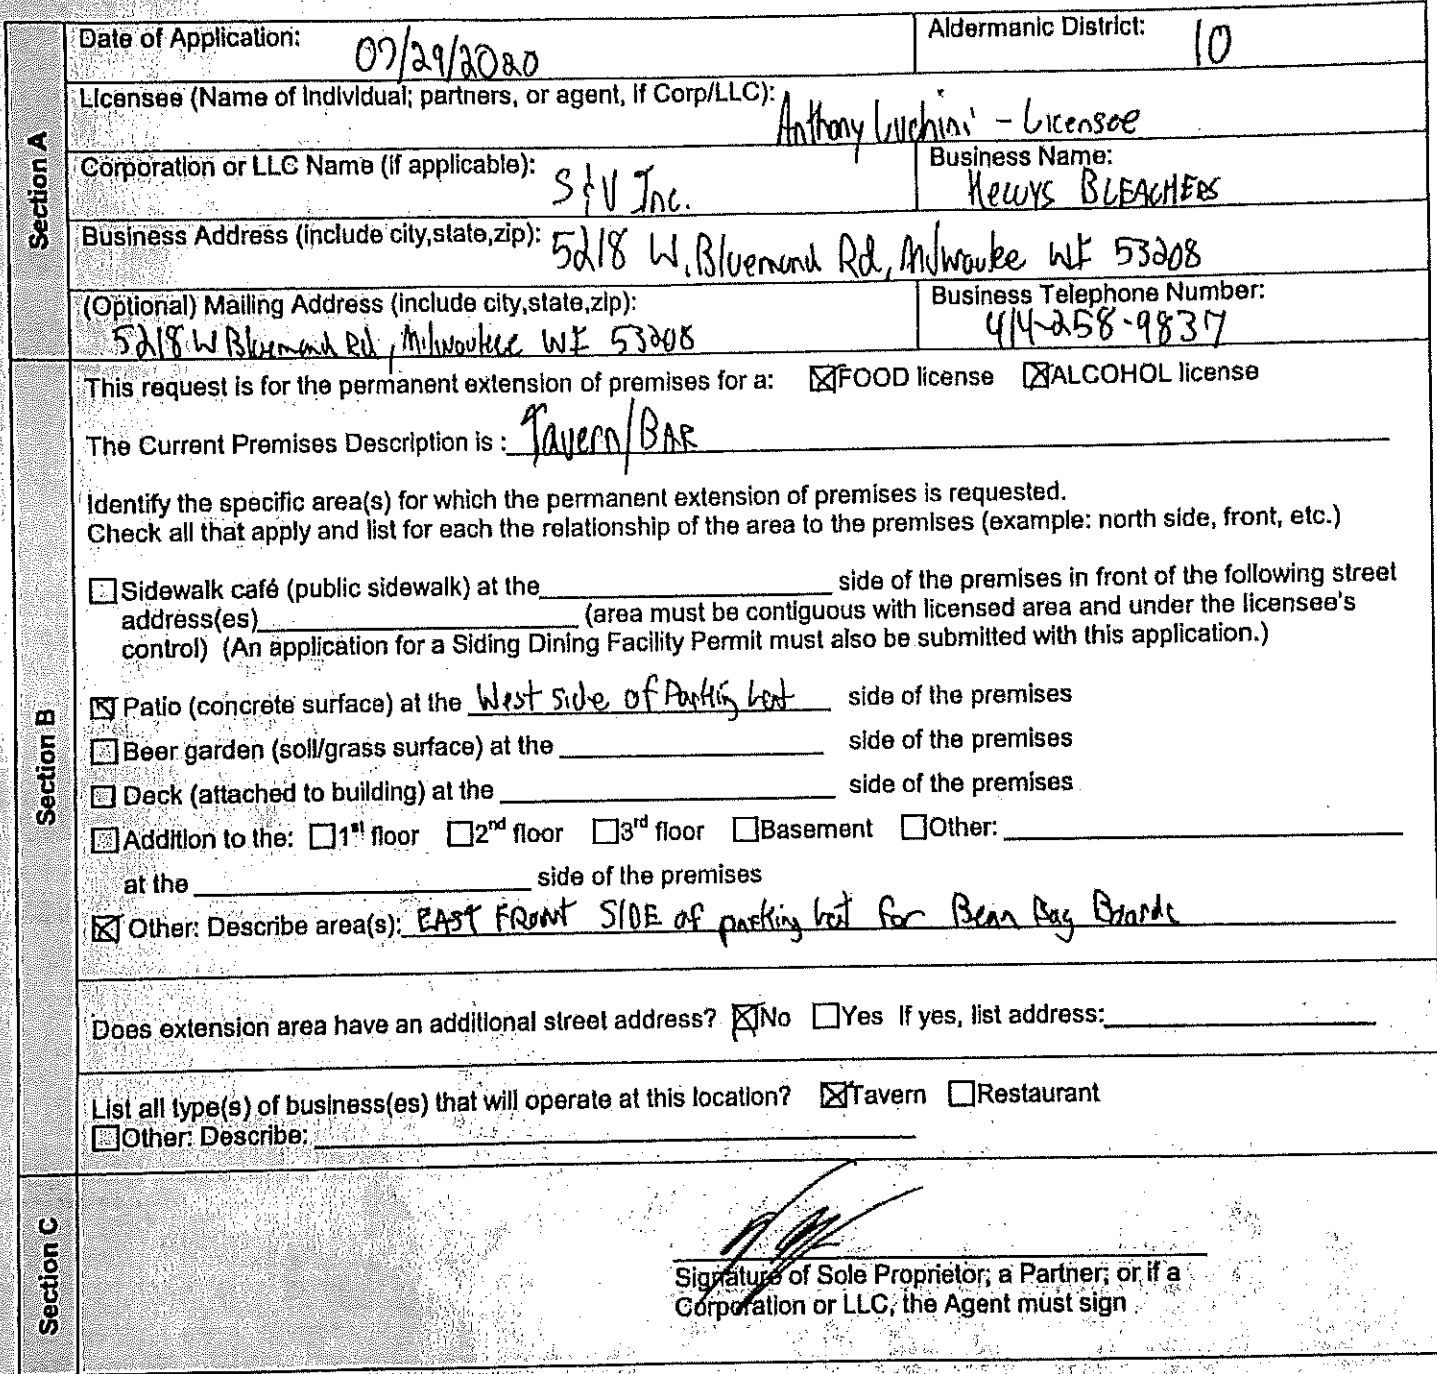 Section A
Date of Application: 07/29/2020
Aldermanic District: 10
Licensee (Name of Individual; partners, or agent, if Corp/LLC): Anthony Luchini - Licensee
Corporation or LLC Name (if applicable): S & V Inc.
Business Name:
BLEACHERS
Business Address (include city,state,zip): 5218 W. Bluemond Rd, Milwaukee WI 53208
(Optional) Mailing Address (include city,state,zip):
5218 W Bluemond Rd, Milwaukee WI 53208
Business Telephone Number:
414-258-9837
Section B
This request is for the permanent extension of premises for a: ☒FOOD license ☒ALCOHOL license
The Current Premises Description is : Tavern/BAR
Identify the specific area(s) for which the permanent extension of premises is requested.
Check all that apply and list for each the relationship of the area to the premises (example: north side, front, etc.)
☐Sidewalk café (public sidewalk) at the____ side of the premises in front of the following street
address(es)____ (area must be contiguous with licensed area and under the licensee's
control) (An application for a Siding Dining Facility Permit must also be submitted with this application.)
☒ Patio (concrete surface) at the West side of Parking Lot side of the premises
☐Beer garden (soil/grass surface) at the ____ side of the premises
☐ Deck (attached to building) at the ____ side of the premises
☐Addition to the: ☐1st floor ☐2nd floor ☐3rd floor ☐Basement ☐Other: ____
at the ____ side of the premises
☒ Other: Describe area(s): EAST FRONT SIDE of parking lot for Bean Bag Boards
Does extension area have an additional street address? ☒No ☐Yes If yes, list address:____
List all type(s) of business(es) that will operate at this location? ☒Tavern ☐Restaurant
☐Other: Describe:____
Section C
Signature of Sole Proprietor; a Partner; or if a
Corporation or LLC, the Agent must sign